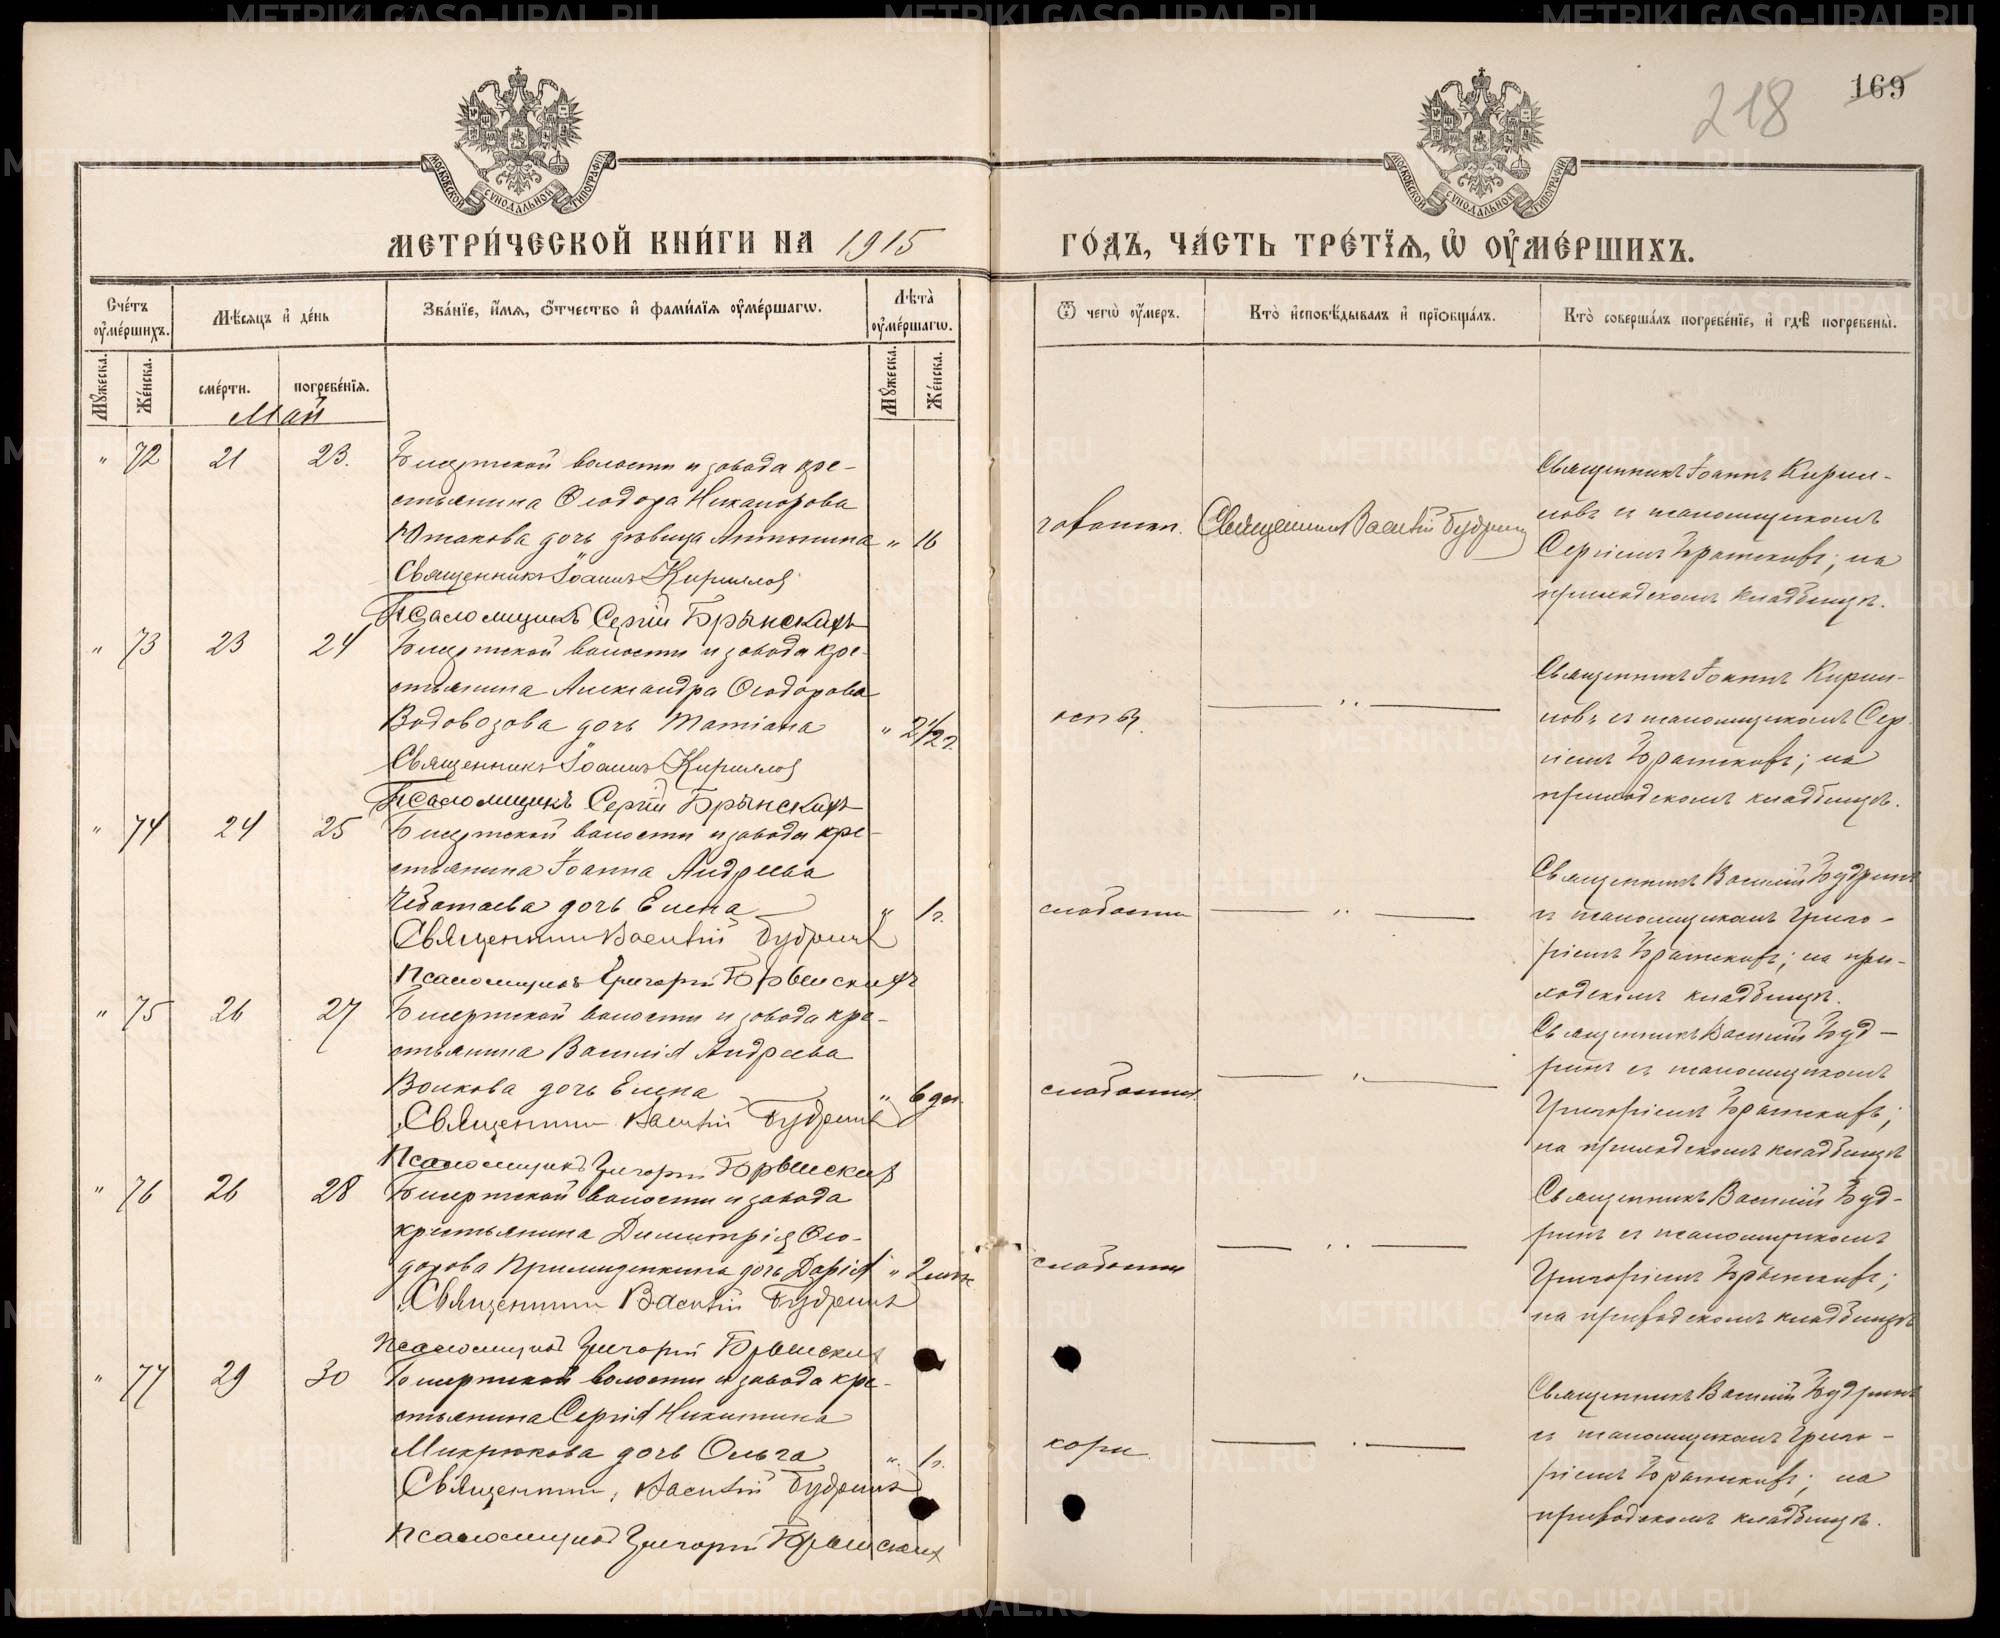 218
169
МОСКОВСКОЙ СѴНОДАЛЬНОЙ ТИПОГРАФІИ
МОСКОВСКОЙ СѴНОДАЛЬНОЙ ТИПОГРАФІИ
МЕТРИ́ЧЕСКОЙ КНИ́ГИ НА 1915 ГО́ДЪ, ЧА́СТЬ ТРЕ́ТІЯ, Ѡ ОУМЕ́РШИХЪ.
Сче́тъ оуме́ршихъ.
Мѣсяцъ и де́нь
Зва́ніе, и́мя, ѻ́тчество и фами́лія оуме́ршагѡ.
Лѣта̀ оуме́ршагѡ.
Ѿ чегѡ̀ оу́меръ.
Кто̀ исповѣ́дывалъ и прїобща́лъ.
Кто̀ соверша́лъ погребе́ніе, и гдѣ̀ погребены̀.
Мꙋ́жеска.
Же́нска.
сме́рти.
погребе́нія.
Мꙋ́жеска.
Же́нска.
Май
" 72 21 23.
Бисертской волости и завода кре-
стьянина Ѳеодора Никанорова
Ютакова дочь девица Антонина " 16
Священникъ Іоаннъ Кириллов
Псаломщикъ Сергій Брынскихъ
Священникъ Василій Будрин
Священникъ Іоаннъ Кирил-
ловъ съ псаломщикомъ
Сергіемъ Брынскихъ; на
приходскомъ кладбищѣ.
" 73 23 24
Бисертской волости и завода кре-
стьянина Александра Ѳеодорова
Водовозова дочь Татіана "
Священникъ Іоаннъ Кириллов
Псаломщикъ Сергій Брынскихъ
оспы. — " —
Священникъ Іоаннъ Кирил-
ловъ съ псаломщикомъ Сер-
гіемъ Брынскихъ; на
приходскомъ кладбищѣ.
" 74 24 25
Бисертской волости и завода кре-
стьянина Іоанна Андреева
Чеботаева дочь Елена " 1 г.
Священник Василій Будринъ
Псаломщикъ Григорій Брынскихъ
слабости — " —
Священникъ Василій Будринъ
съ псаломщикомъ Григо-
ріемъ Брынскихъ; на при-
ходскомъ кладбищѣ.
" 75 26 27
Бисертской волости и завода кре-
стьянина Василія Андреева
Волкова дочь Елена " 6 дн.
Священник Василій Будринъ
Псаломщикъ Григорій Брынских
слабости. — " —
Священникъ Василій Буд-
ринъ съ псаломщикомъ
Григоріемъ Брынскихъ;
на приходскомъ кладбищѣ
" 76 26 28
Бисертской волости и завода
крестьянина Димитрія Ѳео-
дорова дочь Дарія "
Священник Василій Будринъ
Псаломщикъ Григорій Брынских
слабости — " —
Священникъ Василій Буд-
ринъ съ псаломщикомъ
Григоріемъ Брынскихъ;
на приходскомъ кладбищѣ
" 77 29 30
Бисертской волости и завода кре-
стьянина Сергія Никитина
Микрюкова дочь Ольга " 1 г.
Священник Василій Будринъ
Псаломщикъ Григорій Брынских
кори — " —
Священникъ Василій Будринъ
съ псаломщикомъ Григо-
ріемъ Брынскихъ; на
приходскомъ кладбищѣ.
METRIKI.GASO-URAL.RU